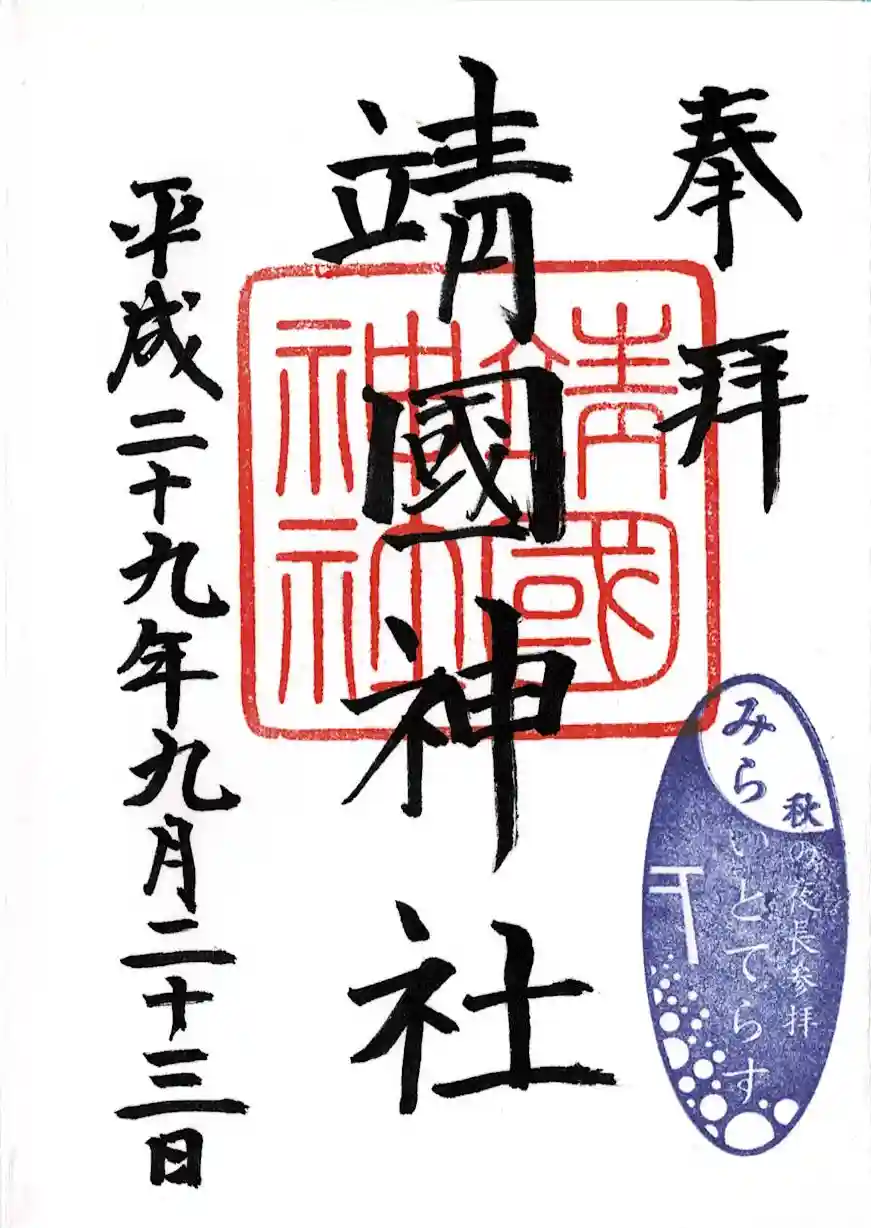 奉拝
靖國神社
靖國神社
平成二十九年九月二十三日
秋の夜長参拝
みらいとてらす